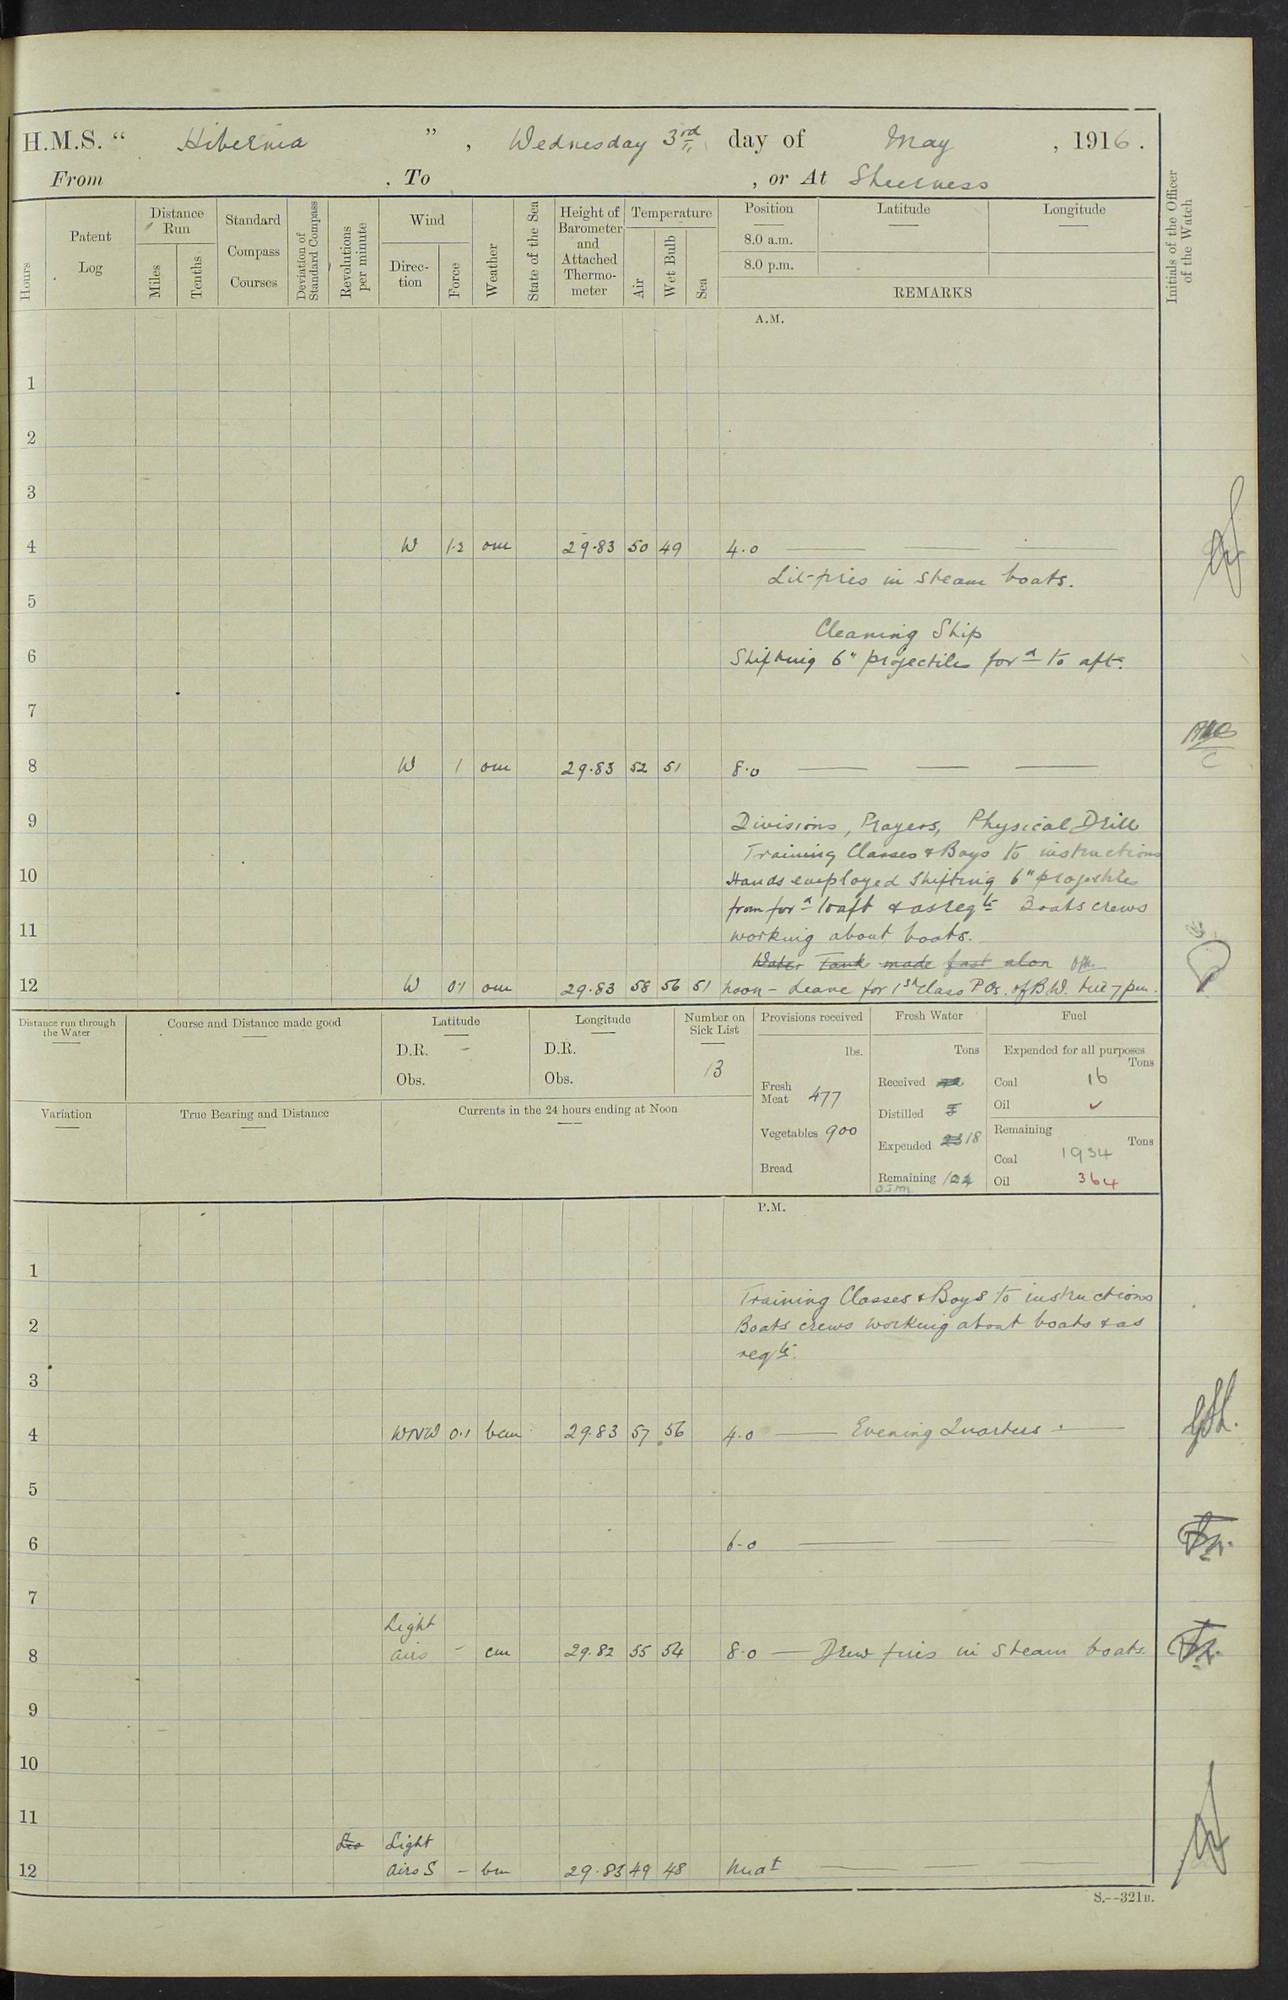 H.M.S. “ Hibernia ” , Wednesday 3rd day of May , 1916 .
From , To , or At Sheerness
Hours
Patent Log
Distance Run
Miles
Tenths
Standard Compass Courses
Deviation of Standard Compass
Revolutions per minute
Wind
Direction
Force
Weather
State of the Sea
Height of Barometer and Attached Thermometer
Temperature
Air
Wet Bulb
Sea
Position
8.0 a.m.
8.0 p.m.
Latitude
Longitude
REMARKS
Initials of the Officer of the Watch
A.M.
1
2
3
4 W 1.2 om 29.83 50 49 4.0
Lit fires in steam boats.
5
Cleaning Ship
6 Shifting 6" projectiles ford to aft.
7
8 W 1 om 29.83 52 51 8.0
9 Divisions, Prayers, Physical Drill
Training Classes & Boys to instructions
10 Hands employed shifting 6" projectiles
from ford to aft & as reqte Boats crews
11 working about boats.
Water Tank made fast alon
12 W 0.1 om 29.83 58 56 51 Noon - Leave for 1st Class POs. of B.W. till 7 pm.
Distance run through the Water
Course and Distance made good
Latitude
D.R. -
Obs.
Longitude
D.R.
Obs.
Number on Sick List
13
Provisions received
lbs.
Fresh Meat 477
Vegetables 900
Bread
Fresh Water
Tons
Received
Distilled
Expended 18
Remaining
Fuel
Expended for all purposes
Tons
Coal 16
Oil ✓
Remaining
Tons
Coal 1934
Oil 364
Variation
True Bearing and Distance
Currents in the 24 hours ending at Noon
P.M.
1
Training Classes & Boys to instructions
2 Boats crews working about boats & as
reqte.
3
4 WNW 0.1 bcm 29.83 57 56 4.0 Evening Quarters
5
6 6.0
7
Light
8 airs - cm 29.82 55 54 8.0 — Drew fires in steam boats.
9
10
11
Light
12 airs S - bm 29.83 49 48 Midt
S.--321B.